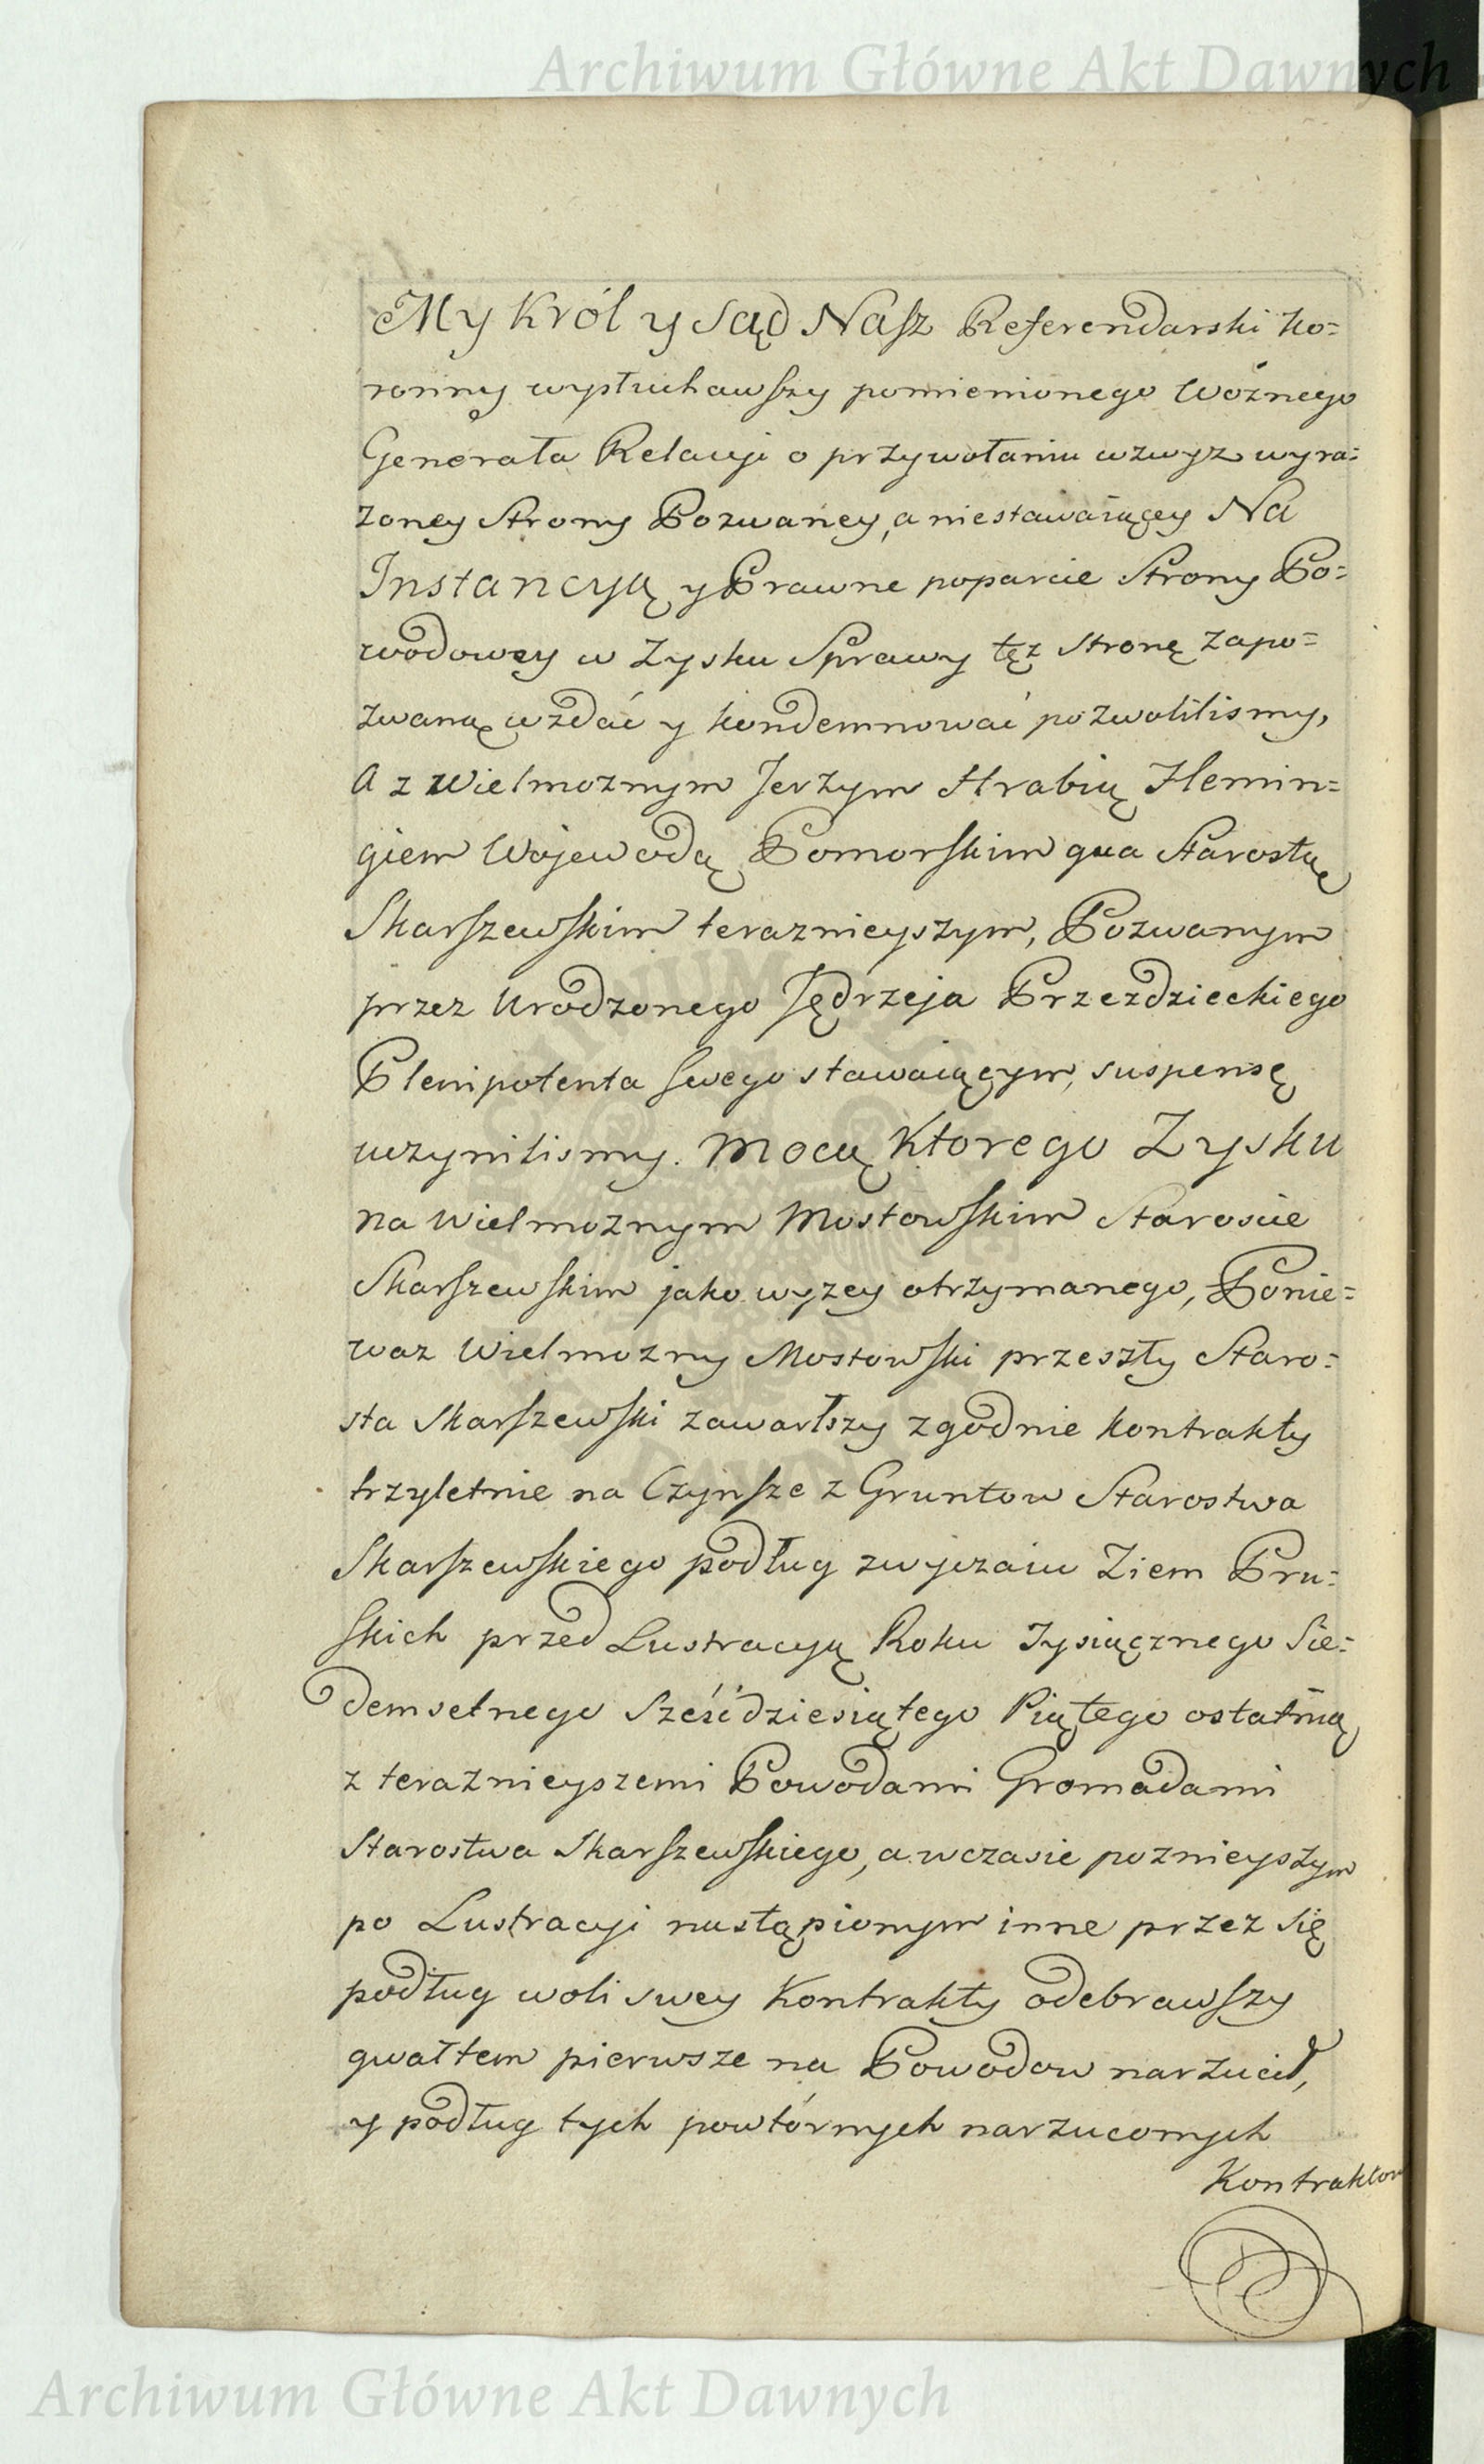 Archiwum Główne Akt Dawnych
My Król y Sąd Nasz Referendarski Ko=
ronny wysłuchawszy pomienionego Woźnego
Generała Relacyi o przywołaniu wzwyz wyra=
zoney Strony Pozwaney, a niestawaiącey Na
Instancyą y Prawne poparcie Strony Po=
wodowey w Zysku Sprawy tęz Stronę zapo=
zwaną wzdać y kondemnować pozwolilismy,
A z Wielmoznym Jerzym Hrabią Flemin=
giem Wojewodą Pomorskim qua Starostą
Skarszewskim teraznieyszym, Pozwanym
przez Urodzonego Jędrzeja Przezdzieckiego
Plenipotenta swego stawaiącym, suspensę
uczynilismy. Mocą Ktorego Zysku
na Wielmoznym Mostowskim Staroscie
Skarszewskim jako wyzey otrzymanego, Ponie=
waz Wielmozny Mostowski przeszły Staro=
sta Skarszewski zawarłszy zgodnie kontrakty
trzyletnie na Czynsze z Gruntow Starostwa
Skarszewskiego podług zwyczaiu Ziem Pru=
skich przed Lustracyą Roku Tysiącznego Sie=
demsetnego Sześćdziesiątego Piątego ostatnią
z teraznieyszemi Powodami Gromadami
Starostwa Skarszewskiego, a wczasie poznieyszym
po Lustracyi nastąpionym inne przez się
podług woli swey Kontrakty odebrawszy
gwałtem pierwsze na Powodow narzucił,
y podług tych powtórnych narzuconych
Kontraktow
Archiwum Główne Akt Dawnych